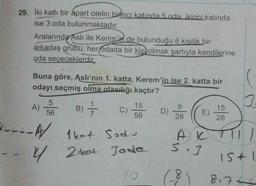 29. İki katlı bir apart otelin birinci katında 5 oda, ikinci katında
ise 3 oda bulunmaktadır.
Aralarında Aslı ile Kerim'in de bulunduğu 6 kişilik bir
arkadaş grubu, her odada bir kişi olmak şartıyla kendilerine
oda seçeceklerdir.
Buna göre, Aslı'nın 1. katta, Kerem'in ise 2. katta bir
odayı seçmiş olma olasılığı kaçtır?
A) 5/56 B) 1/7 C) 15/56 D) 9/28 E) 15/28
A 1kat 5oda
A K
2 kat 3oda
5.3
10